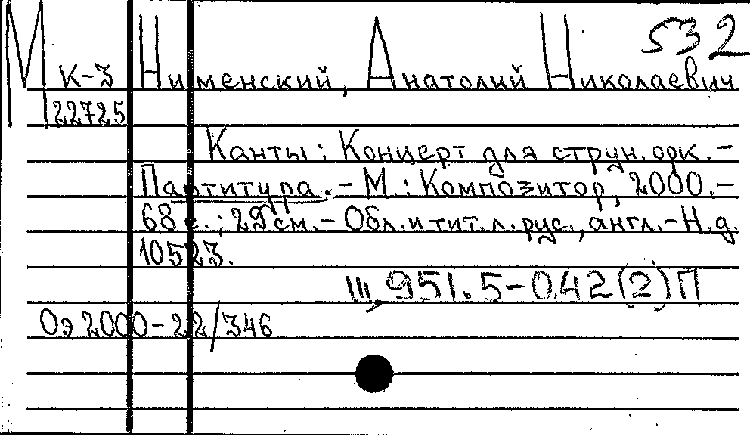 532
М К-3 Нименский, Анатолий Николаевич
22725
Канты: Концерт для струн. орк. -
Партитура. - М.: Композитор, 2000. -
68 с.; 29 см. - Обл. и тит. л. рус., англ. - Н. д.
10523.
Ш 951.5-042(2)П
Оэ 2000-22/346